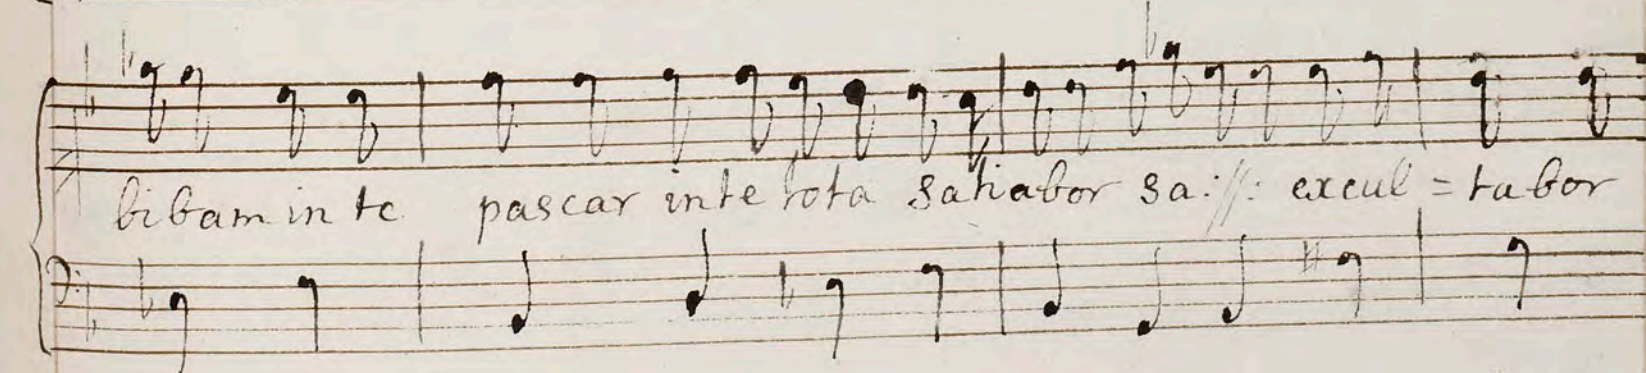 bibam in te pascar in te tota satiabor sa:||: excul=tabor